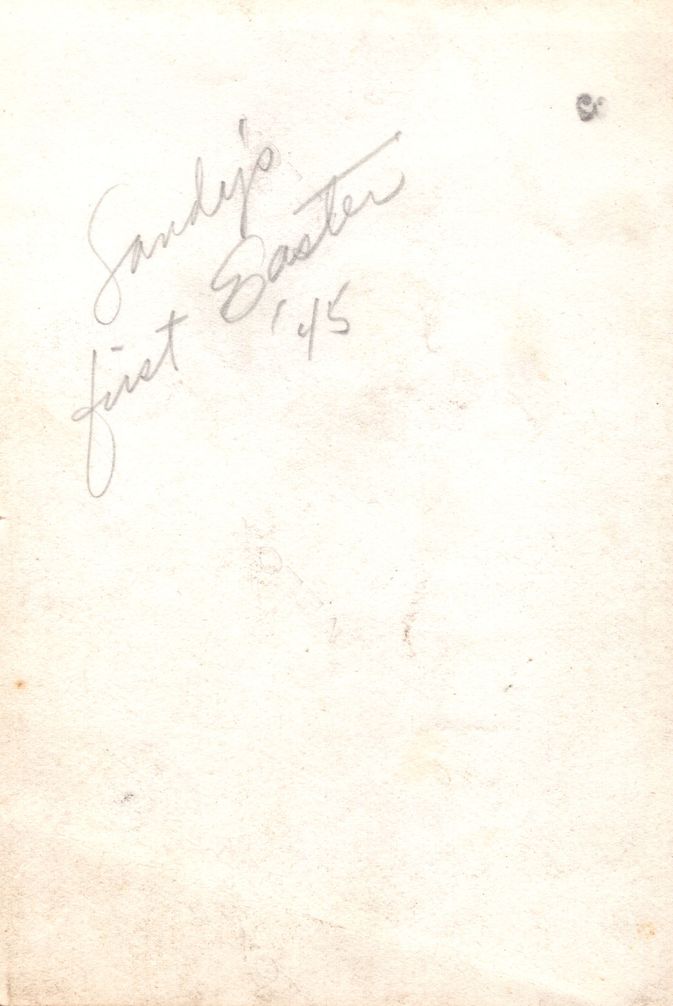 Sandy's
first Easter
'45